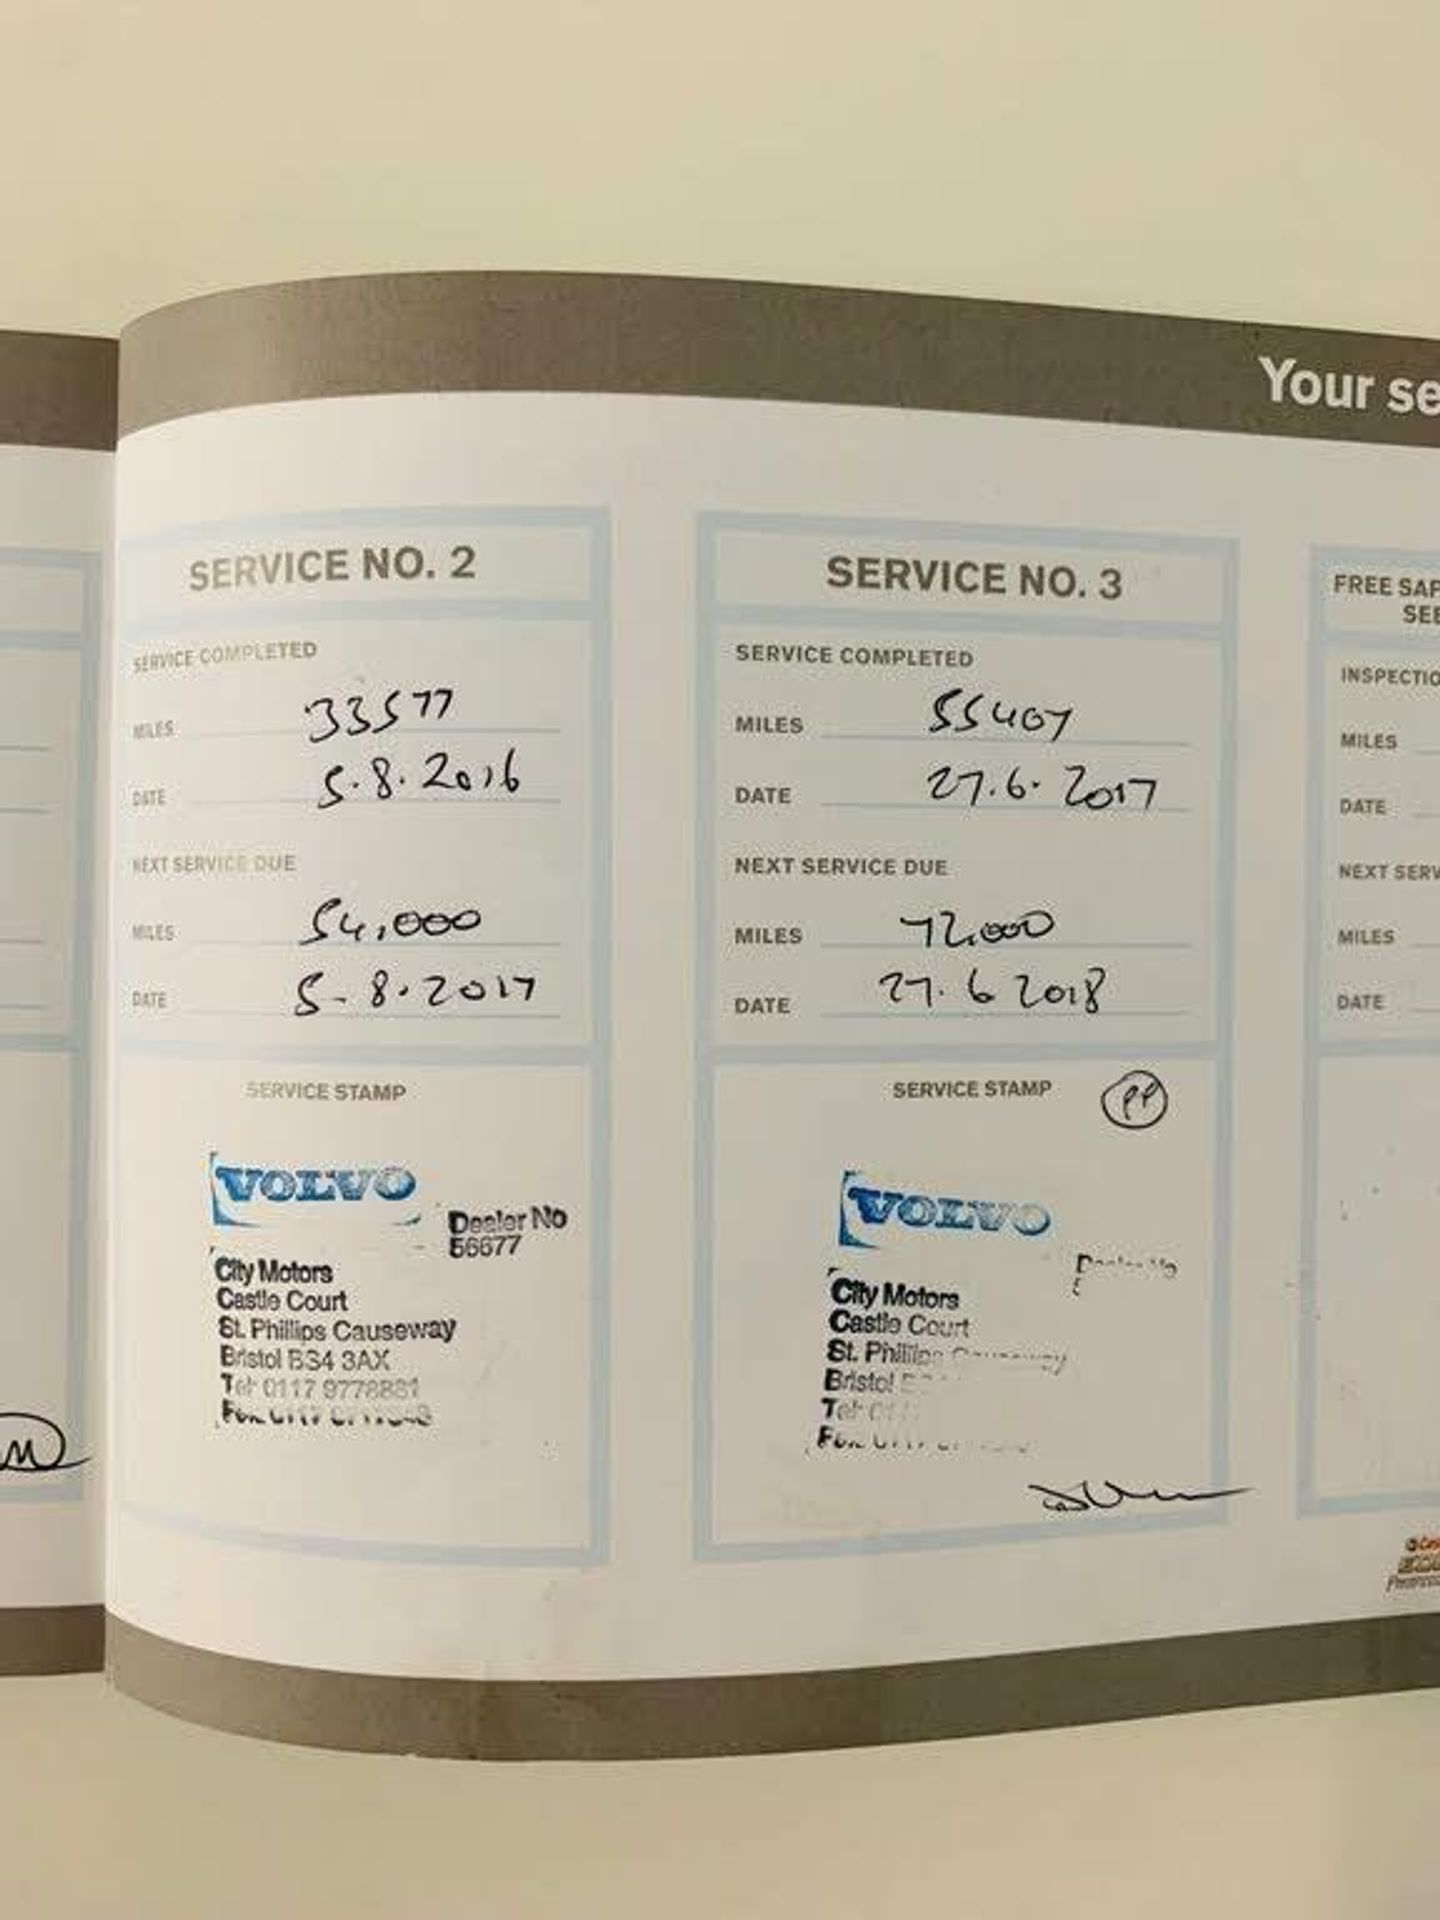 Your se
SERVICE NO. 2
SERVICE COMPLETED
MILES 33577
DATE 5.8.2016
NEXT SERVICE DUE
MILES 54,000
DATE 5-8.2017
SERVICE STAMP
VOLVO
Dealer No
56677
City Motors
Castle Court
St. Phillips Causeway
Bristol BS4 3AX
Tel: 0117 9778881
SERVICE NO. 3
SERVICE COMPLETED
MILES 55407
DATE 27.6.2017
NEXT SERVICE DUE
MILES 72,000
DATE 27.6 2018
SERVICE STAMP
PP
VOLVO
Dealer No
City Motors
Castle Court
St. Phillips Causeway
Bristol
Tel:
FREE SAF
SEE
INSPECTIO
MILES
DATE
NEXT SERV
MILES
DATE